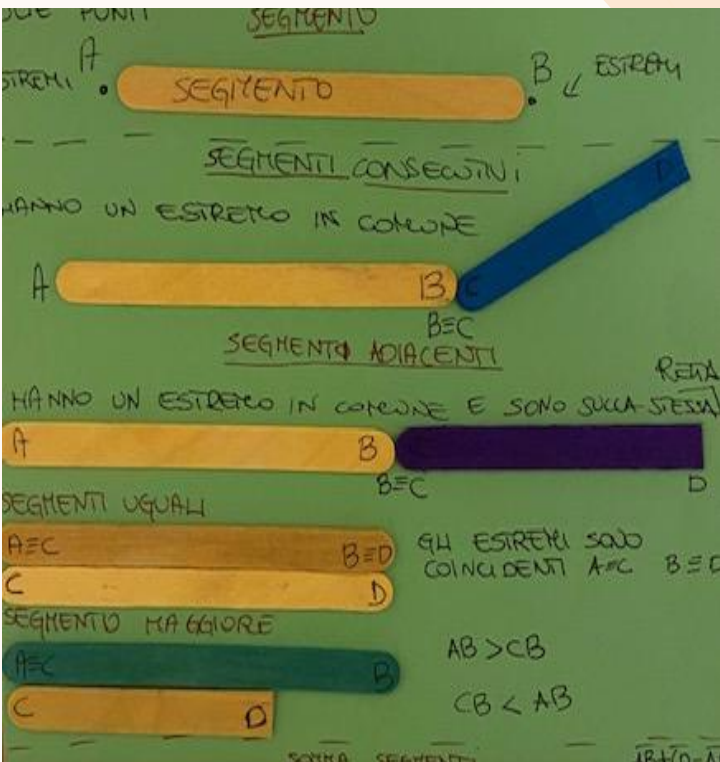 DUE PUNTI SEGMENTO
STREMI A B ESTREMI
SEGMENTO
SEGMENTI CONSECUTIVI
HANNO UN ESTREMO IN COMUNE
D
A B C
B≡C
SEGMENTI ADIACENTI
RETTA
HANNO UN ESTREMO IN COMUNE E SONO SULLA STESSA
A B
B≡C D
SEGMENTI UGUALI
A≡C B≡D GLI ESTREMI SONO
COINCIDENTI A≡C B≡D
C D
SEGMENTO MAGGIORE
A≡C B AB > CB
C D CB < AB
SOMMA SEGMENTI